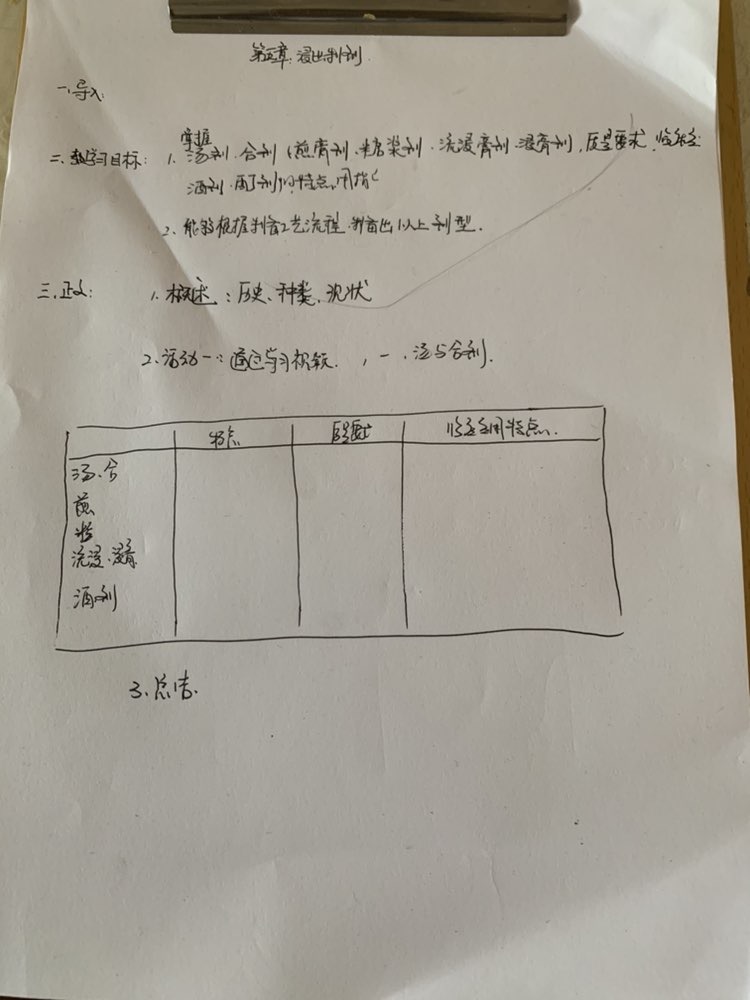 第五章:浸出制剂
一、导入:
掌握
二、教学习目标: 1. 汤剂、合剂、煎膏剂、糖浆剂、流浸膏剂、浸膏剂, 质量要求、临床应
酒剂、酊剂的特点、用指
2. 能够根据制备工艺流程, 制备出以上剂型.
三、正文: 1. 概述:历史、种类、现状
2. 活动一:通过学习视频. , 一、汤与合剂.
特点 质量要求 临床应用特点.
汤、合
煎
糖
流浸、浸膏
酒剂
3、总结.